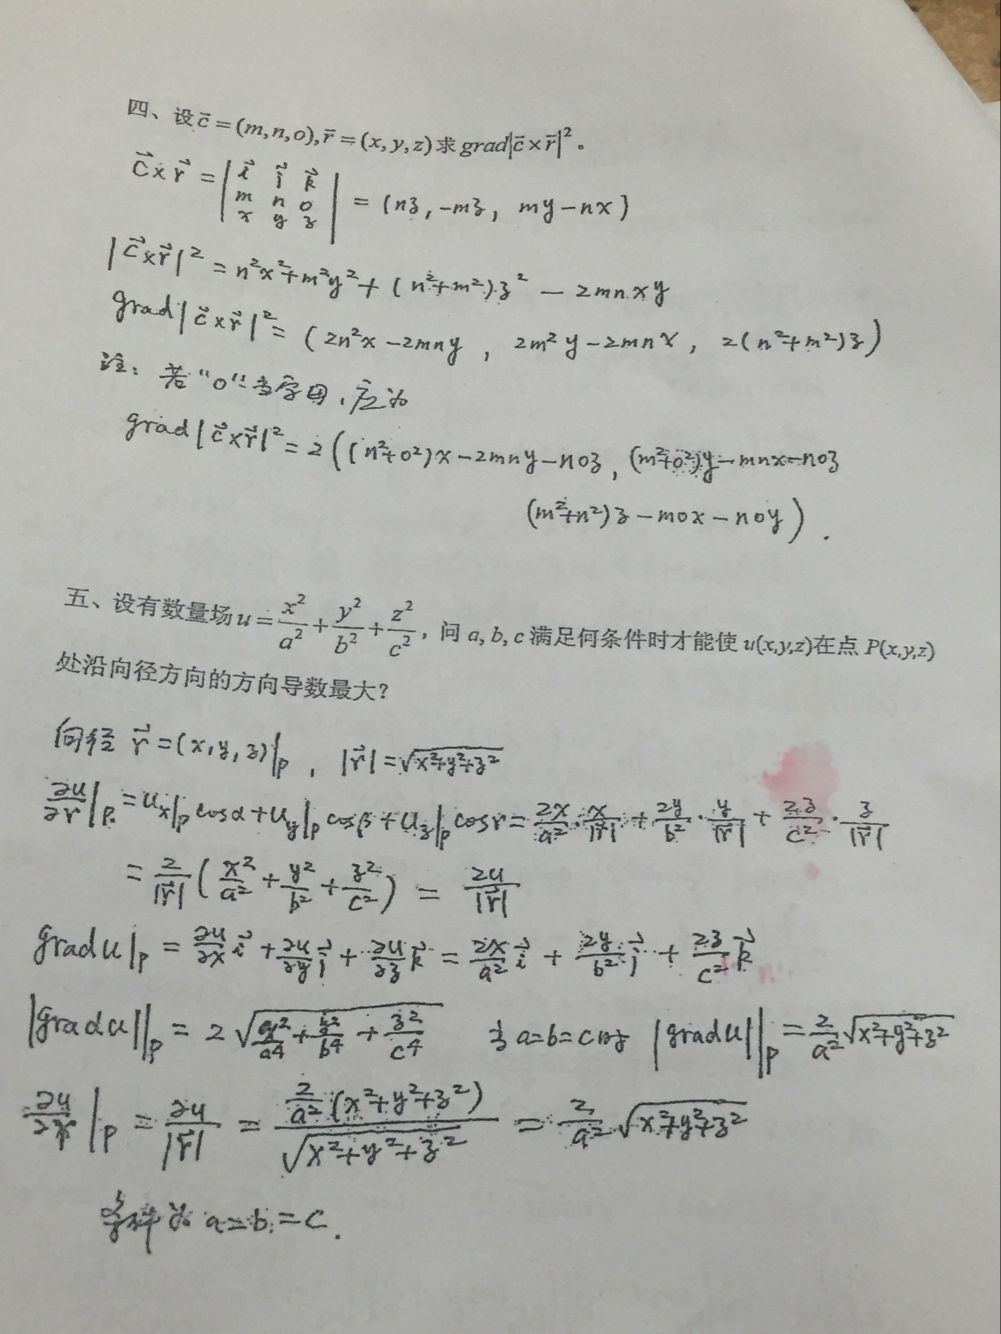 四、设 c̄=(m,n,o), r̄=(x,y,z)求 grad|c̄×r̄|²。
c⃗×r⃗ = | i⃗ j⃗ k⃗ |
m n o
x y z
= (nz, -mz, my-nx)
|c⃗×r⃗|² = n²x²+m²y²+(n²+m²)z² - 2mnxy
grad|c⃗×r⃗|² = (2n²x-2mny , 2m²y-2mnx, 2(n²+m²)z)
注: 若"o"当字母,应为
grad|c⃗×r⃗|² = 2((n²+o²)x-2mny-noz, (m²+o²)y-mnx-noz
(m²+n²)z-mox-noy).
五、设有数量场 u = x²/a² + y²/b² + z²/c², 问 a, b, c 满足何条件时才能使 u(x,y,z)在点 P(x,y,z)
处沿向径方向的方向导数最大?
向径 r⃗=(x,y,z)|p , |r⃗|=√(x²+y²+z²)
∂u/∂r|p = ux|p cosα+uy|p cosβ+uz|p cosr = 2x/a²·x/|r⃗| + 2y/b²·y/|r⃗| + 2z/c²·z/|r⃗|
= 2/|r⃗| (x²/a² + y²/b² + z²/c²) = 2u/|r⃗|
gradu|p = ∂u/∂x i⃗ + ∂u/∂y j⃗ + ∂u/∂z k⃗ = 2x/a² i⃗ + 2y/b² j⃗ + 2z/c² k⃗
|gradu||p = 2√(x²/a⁴ + y²/b⁴ + z²/c⁴) 当 a=b=c时 |gradu||p = 2/a² √(x²+y²+z²)
∂u/∂r|p = 2u/|r⃗| = 2/a² (x²+y²+z²) / √(x²+y²+z²) = 2/a² √(x²+y²+z²)
条件为 a=b=c.